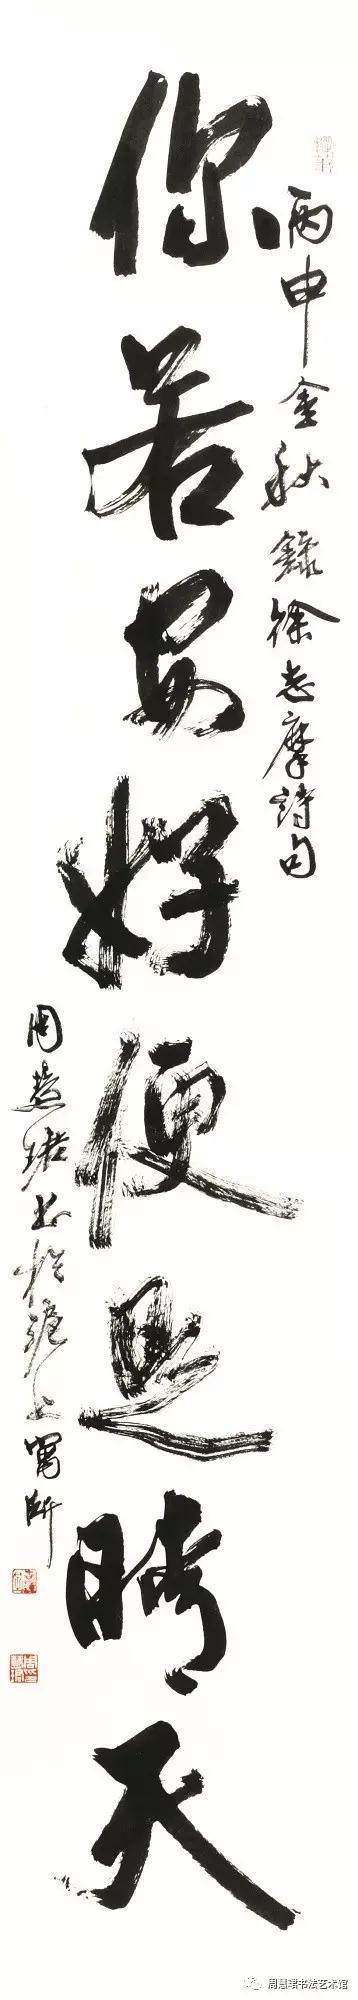 丙申金秋錄徐志摩詩句
你若安好便是晴天
周慧珺書於滬上寓所
周慧珺书法艺术馆